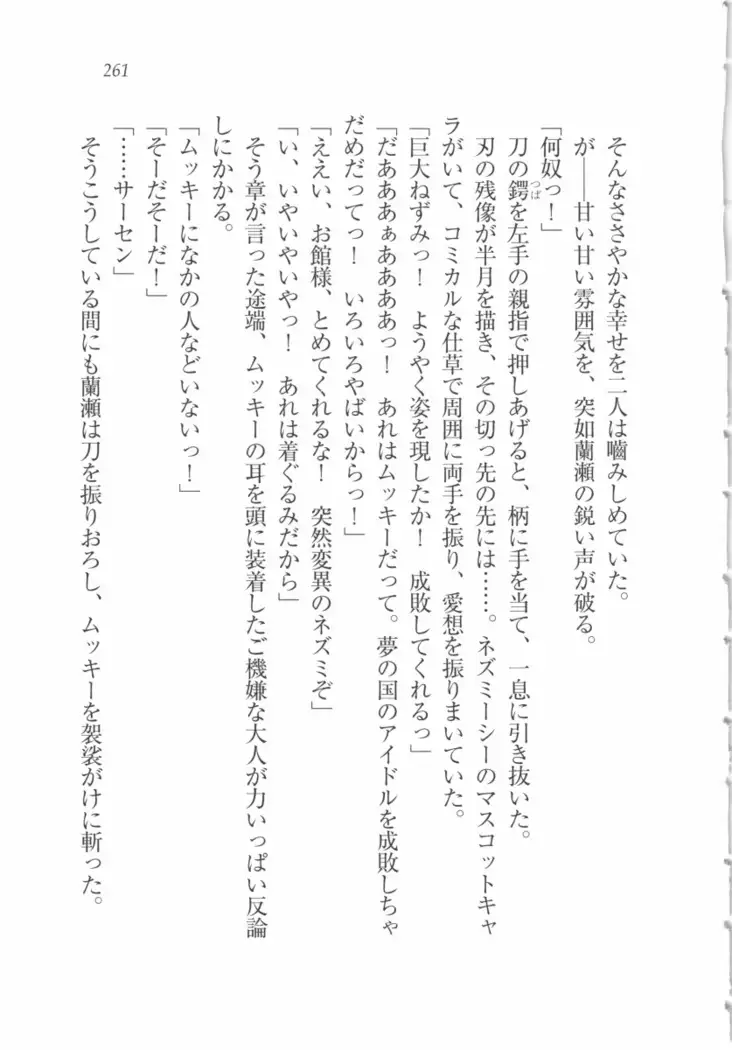 261
そんなささやかな幸せを二人は嚙みしめていた。
が――甘い甘い雰囲気を、突如蘭瀬の鋭い声が破る。
「何奴っ！」
刀の鍔つばを左手の親指で押しあげると、柄に手を当て、一息に引き抜いた。
刃の残像が半月を描き、その切っ先の先には……。ネズミーシーのマスコットキャ
ラがいて、コミカルな仕草で周囲に両手を振り、愛想を振りまいていた。
「巨大ねずみっ！　ようやく姿を現したか！　成敗してくれるっ」
「だあああぁああああっ！　あれはムッキーだって。夢の国のアイドルを成敗しちゃ
だめだってっ！　いろいろやばいからっ！」
「ええい、お館様、とめてくれるな！　突然変異のネズミぞ」
「い、いやいやいやっ！　あれは着ぐるみだから」
そう章が言った途端、ムッキーの耳を頭に装着したご機嫌な大人が力いっぱい反論
しにかかる。
「ムッキーになかの人などいないっ！」
「そーだそーだ！」
「……サーセン」
そうこうしている間にも蘭瀬は刀を振りおろし、ムッキーを袈裟がけに斬った。